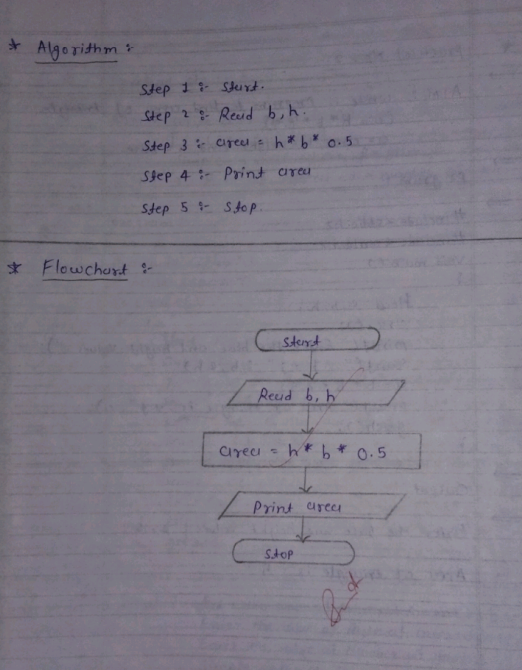 * Algorithm :-
Step 1 :- Start.
Step 2 :- Read b, h.
Step 3 :- area = h * b * 0.5
Step 4 :- Print area
Step 5 :- Stop.
* Flowchart :-
Start
Read b, h
area = h * b * 0.5
Print area
Stop